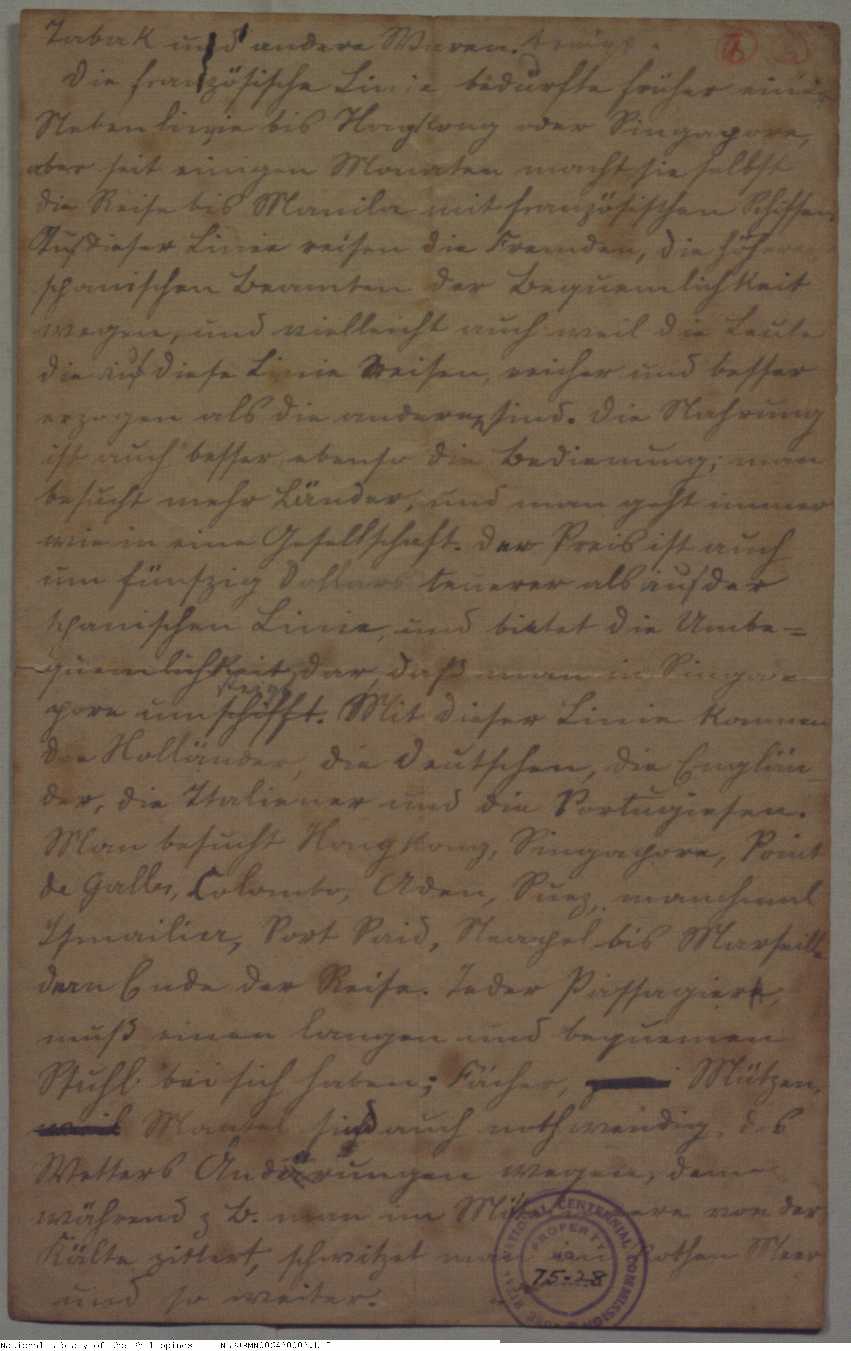 Tabak und andere Waren.
Die französische Linie bedurfte früher einer
Nebenlinie bis Hongkong oder Singapore,
aber seit einigen Monaten macht sie selbst
die Reise bis Manila mit französischen Schiffen.
Auf dieser Linie reisen die Fremden, die höheren
spanischen Beamten der Bequemlichkeit
wegen, und vielleicht auch weil die Leute
die auf diese Linie Reisen, reicher und besser
erzogen als die anderen sind. Die Nahrung
ist auch besser, ebenso die Bedienung; man
besucht mehr Länder, und man geht immer
wie in eine Gesellschaft. Der Preis ist auch
um fünfzig Dollars teuerer als auf der
spanischen Linie, und bietet die Unbe=
quemlichkeit dar, daß man in Singa=
pore umschifft. Mit dieser Linie kommen
die Holländer, die Deutschen, die Englän=
der, die Italiener und die Portugiesen.
Man besucht Hongkong, Singapore, Point
de Galles, Colombo, Aden, Suez, manchmal
Ismailia, Port Said, Neapel bis Marseille
dem Ende der Reise. Jeder Passagier
muß einen langen und bequemen
Stuhl bei sich haben; Fächer, Mützen,
Mantel sind auch nothwendig, des
Wetters Änderungen wegen, denn
während z. B. man im Mittelmeere von der
Kälte zittert, schwitzt man im Rothen Meer
und so weiter.
NATIONAL CENTENNIAL COMMISSION
JOSE RIZAL
PROPERTY
NO.
75-28
National Library of the Philippines